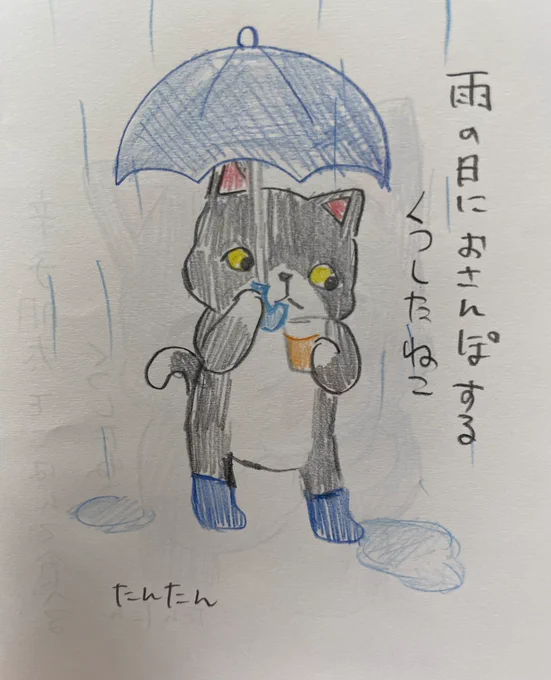 雨の日におさんぽする
くつしたねこ
たんたん